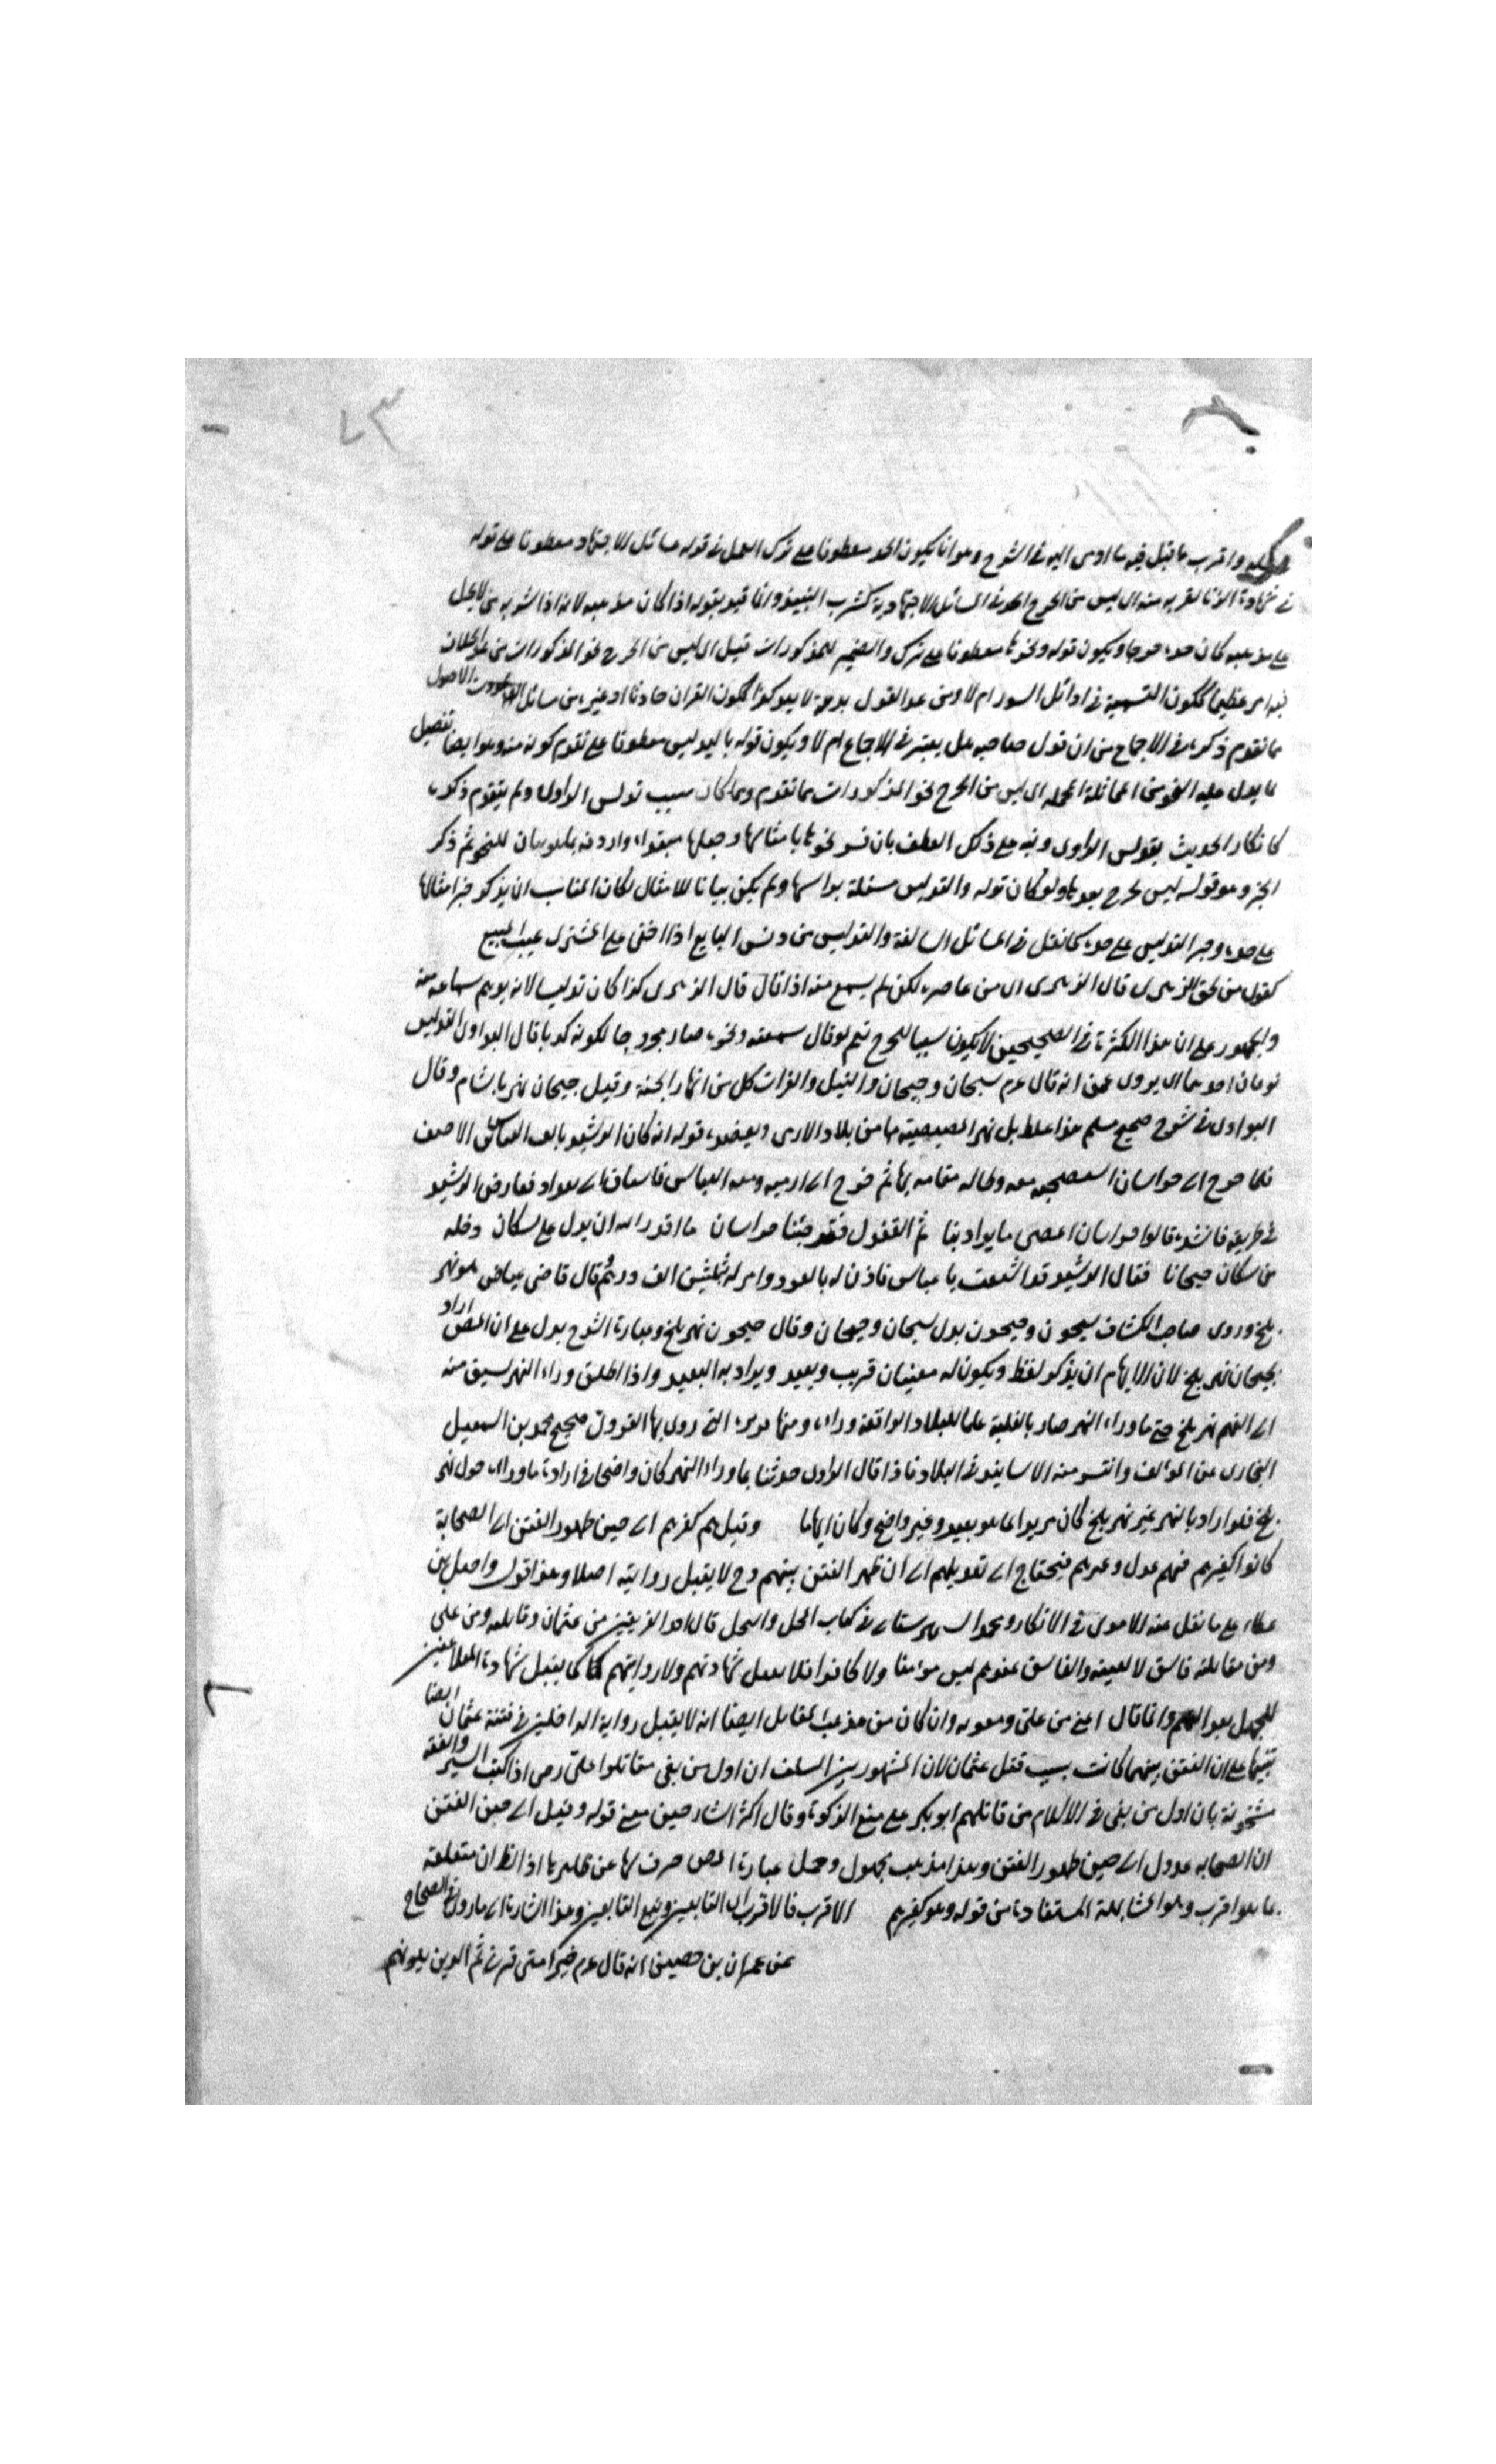 ٧٣
واقرب ما قيل فيه ما اومى اليه في الشرح وهو انا يكون الحد معطوفا على ترك العمل في قوله مسائل الاجتهاد معطوفا على قوله
في شهادة الزنا لقربه منه اى ليس من الجرح الحد في المسائل الاجتهادية كشرب النبيذ وانما قيد بقوله اذا كان مذهبه لانه اذا شربه من لا يحل
على مذهبه كان حده جرحا ويكون قوله ونحوها معطوفا على ترك والضمير للمذكورات قيل اى ليس من الجرح نحو المذكورات من
امر عظيما ككون التسمية في اوائل السور ام لا ومن عد القول بدعة لا يعد كذا ككون القران حادثا او غيره من مسائل الاصول
ما تقدم ذكره في الاجماع من ان قول صاحبه هل يعتبر في الاجماع ام لا ويكون قوله بالتدليس معطوفا على تقدم كونه منه وهو ايضا تفصيل
ما يدل عليه النحو من المماثلة المجملة اى ليس من الجرح نحو المذكورات مما تقدم ومما كان سبب تدليس الراوى ولم يتقدم ذكره
كانكار الحديث بتدليس الراوى ونبه على ذلك العطف بان فسر نحوها بامثالها وجعلها مبتدا واردفه بما هو بيان للنحو ثم ذكر
الخبر وهو قوله ليس بجرح بعدها ولو كان قوله والتدليس مسئلة براسها ولم يكن بيانا للامثال لكان المناسب ان يذكر خبر امثالها
على حده وخبر التدليس على حده كما نقل في المسائل السالفة والتدليس من دلس البايع اذا اخفى على المشترى عيب المبيع
كقول من لحق الزهرى قال الزهرى اى من عاصره لكن لم يسمع منه اذا قال قال الزهرى كذا كان تدليسا لانه يوهم سماعه منه
والجمهور على ان هذا لكثرته في الصحيحين لا يكون سببا للجرح نعم لو قال سمعته ونحوه صار مجروحا لكونه كذبا قال النواوى التدليس
نوعان احدهما اى يروى عمن انه قال عم سيحان وجيحان والنيل والفرات كل من انهار الجنة وقيل جيحان نهر بالشام وقال
النواوى في شرح صحيح مسلم هذا غلط بل نهر المصيصية مها من بلاد الارمن ويعضده قوله انه كان الرشيد العباس الاحنف
فلما خرج الى خراسان معه وطال مقامه بها ثم خرج الى ارمينه ومعه العباس فاشتاق الى بغداد فعارض الرشيد
في طريقه فانشده قالوا خراسان اقصى ما يراد بنا ثم القفول فقد جئنا خراسان ما اقدر الله ان يدل على سكان دجلة
من سكان جيحانا فقال الرشيد قد اشتقت يا عباس فاذن له بالعود وامر له بثلثين الف درهم قال قاضى عياض هو نهر
بلخ وروى صاحب الكشاف سيحون وجيحون بدل سيحان وجيحان وقال جيحون نهر بلخ وعبارة الشرح يدل على ان المص اراد
بجيحان نهر بلخ لان الايهام ان يذكر لفظ ويكون له معنيان قريب وبعيد ويراد به البعيد واذا اطلق وراء النهر سبق منه
الى الفهم نهر بلخ حتى ما وراء النهر صار بالغلبة علما للبلاد الواقعة وراءه ومنها التى روى بها صحيح محمد بن اسمعيل
البخارى عن المؤلف وانتشر منه الاسانيد في البلاد فاذا قال الراوى حدثنا بما وراء النهر كان واضحا في ارادة ما وراء حول نهر
بلخ فلو اراد بالنهر غير نهر بلخ كان مريدا لما هو بعيد وغير واضح وكان ايهاما وقيل هم كغيرهم الى حين ظهور الفتن اى الصحابة
كانوا كغيرهم فمنهم عدل وغيرهم فيحتاج الى تعديلهم الى ان ظهر الفتن بينهم وح لا يقبل روايته اصلا وهذا قول واصل بن
عطاء على ما نقل عنه الامدى في الابكار ومحمد الشهرستانى في كتاب الملل والنحل قال احد الفريقين من عثمان وقاتله ومن على
ومن مقاتله فاسق لا بعينه والفاسق عندهم ليس مؤمنا ولا كافرا فلا يقبل شهادتهم ولا روايتهم كما لا يقبل شهادة المتلاعنين
للجهل وانما قال اعنى من على ومعويه وان كان من مذهب القائل ايضا انه لا يقبل رواية الداخلين في فتنة عثمان ايضا
تنبيها على ان الفتن بينهما كانت بسبب قتل عثمان لان المشهور بين السلف ان اول من بغى مقاتلوا على رضى اذ كتب السير والفقه
مشحونة بان اول من بغى في الاسلام من قاتلهم ابو بكر على منع الزكوة وقال اكثر الشارحين معنى قوله وقيل الى حين الفتن
ان الصحابه عدول الى حين ظهور الفتن وهذا مذهب مجهول وحمل عبارة المص صرف لها عن ظاهرها اذ الظ ان متعلقه
ما هو اقرب وهو المشابهة المستفادة من قوله وهو كغيرهم الاقرب فالاقرب اى التابعين وتبع التابعين وهذا اشارة الى ما روى في الصحاح
عن عمران بن حصين انه قال عم خير امتى قرنى ثم الذين يلونهم